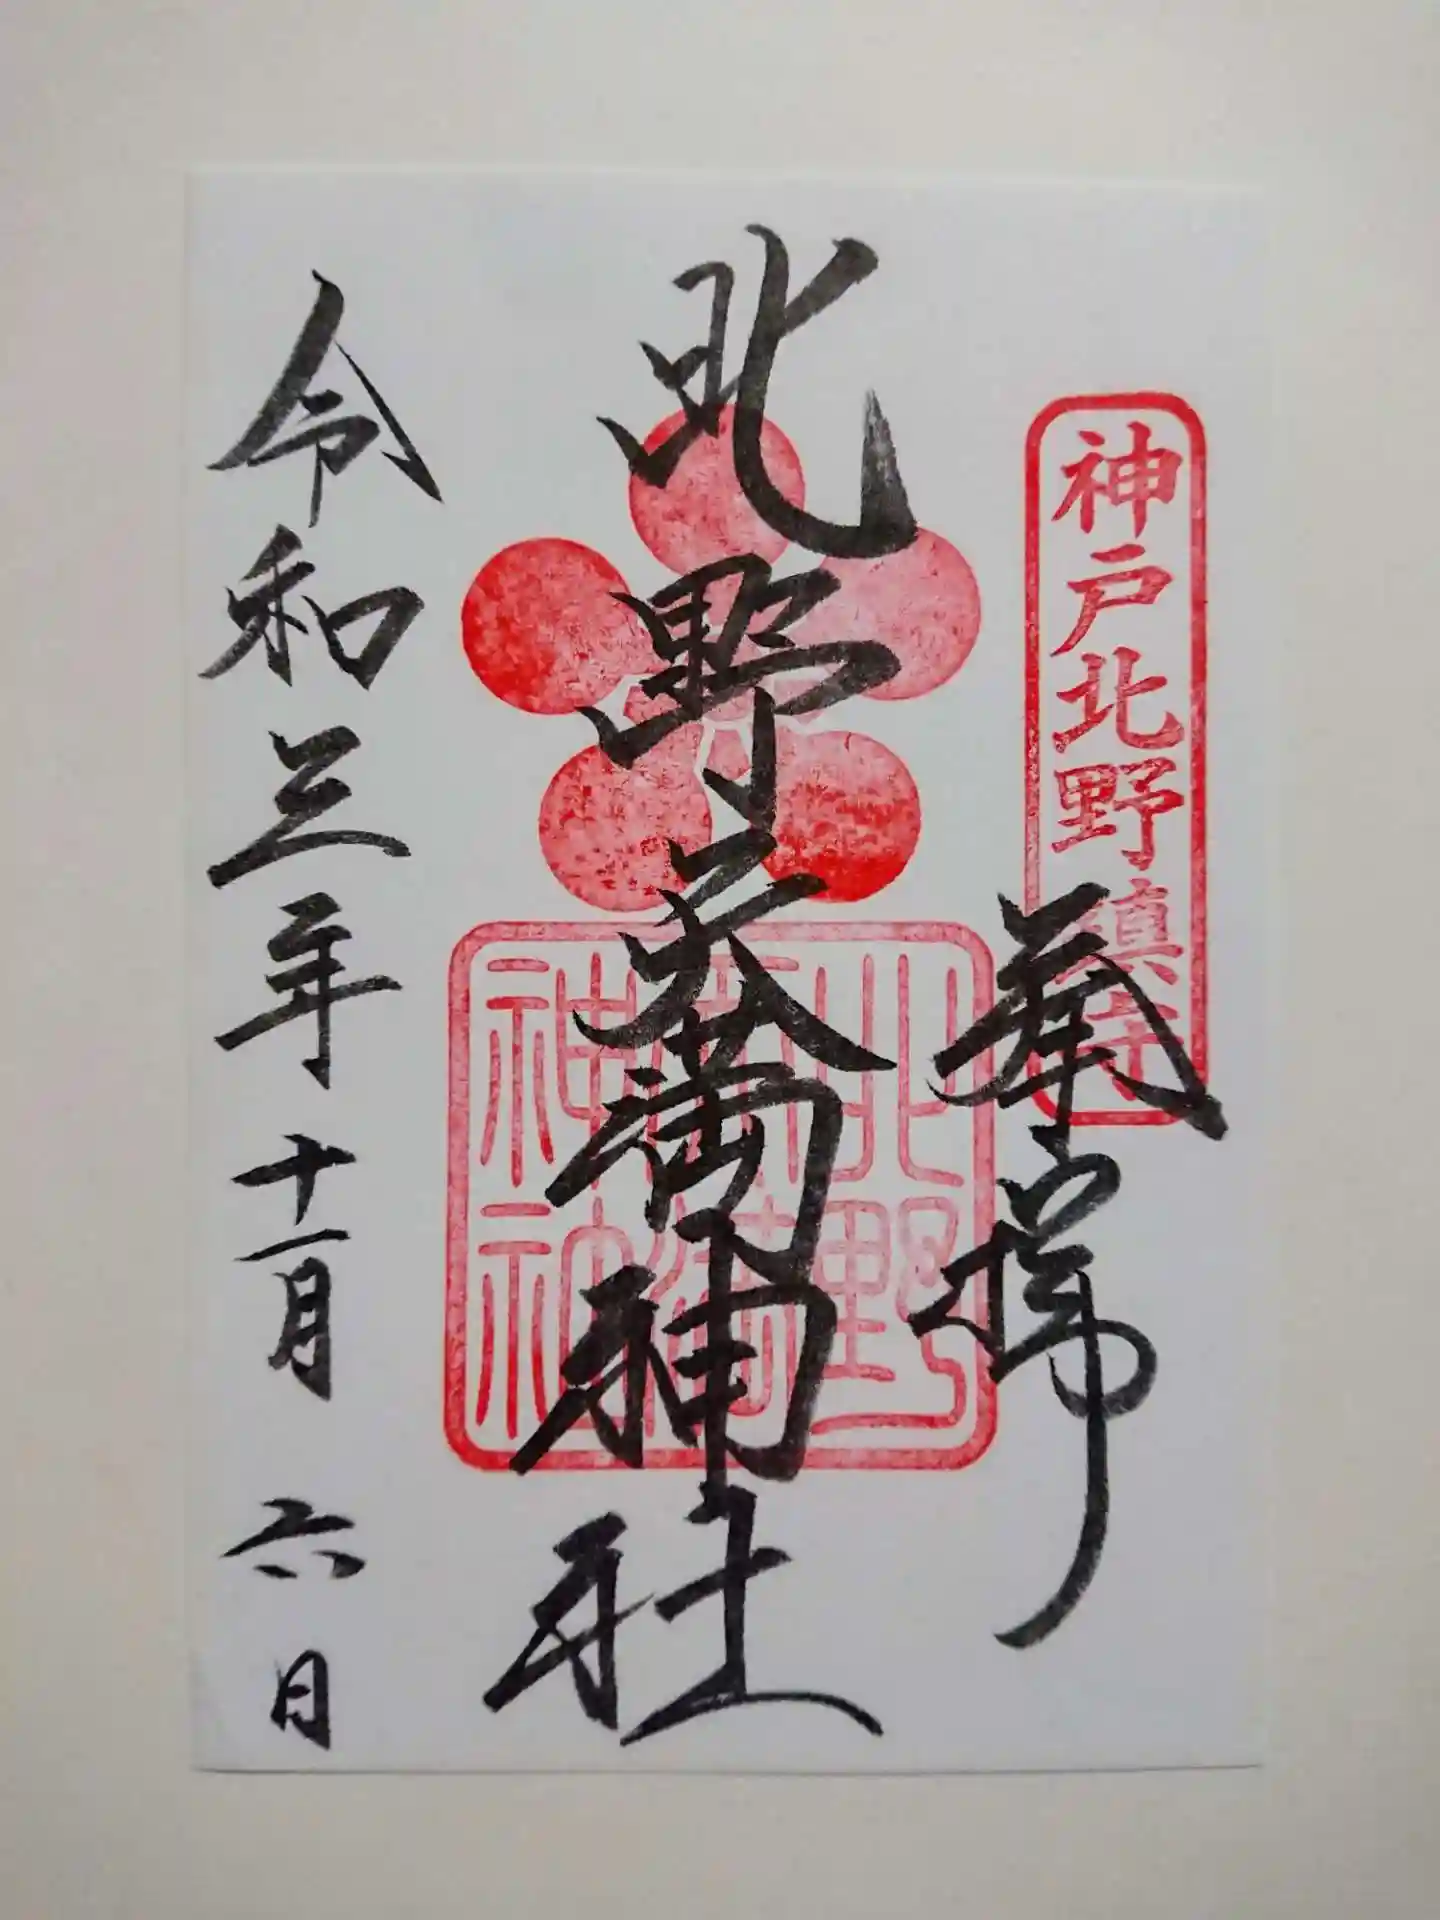 神戸北野鎮守
奉拝
北野天満神社
北野
天満
神社
令和三年十一月六日